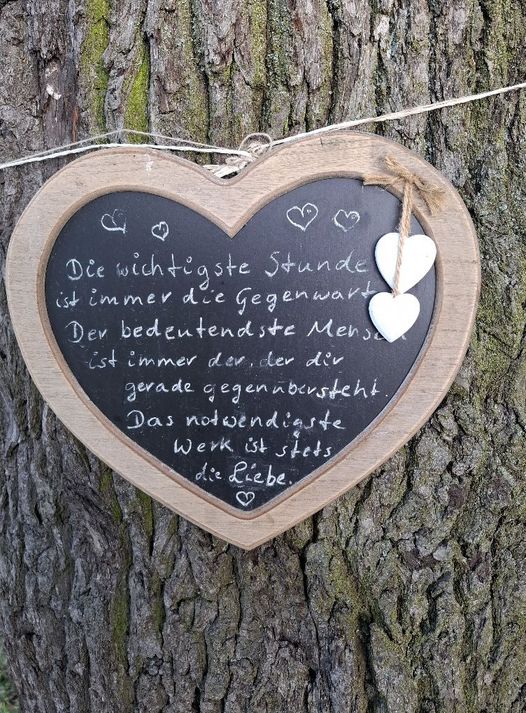 Die wichtigste Stunde
ist immer die Gegenwart
Der bedeutendste Mensch
ist immer der, der dir
gerade gegenübersteht
Das notwendigste
Werk ist stets
die Liebe.